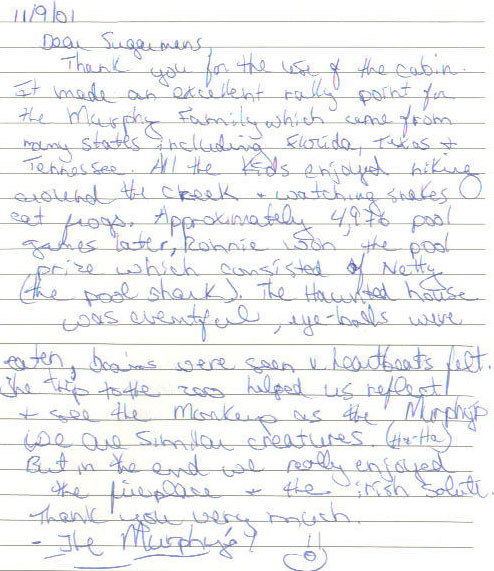 11/9/01
Dear Sugarmans,
Thank you for the use of the cabin.
It made an excellent rally point for
the Murphy Family which came from
many states including Florida, Texas +
Tennessee. All the kids enjoyed hiking
around the creek + watching snakes
eat frogs. Approximately 4,976 pool
games later, Ronnie won the pool
prize which consisted of Netty
(the pool shark). The Haunted house
was eventful, eye-balls were
eaten, brains were seen + heartbeats felt.
The trip to the zoo helped us reflect
+ see the Monkeys as the Murphys
we are similar creatures. (Ha-Ha)
But in the end we really enjoyed
the fireplace + the irish
Thank you very much.
- The Murphys!